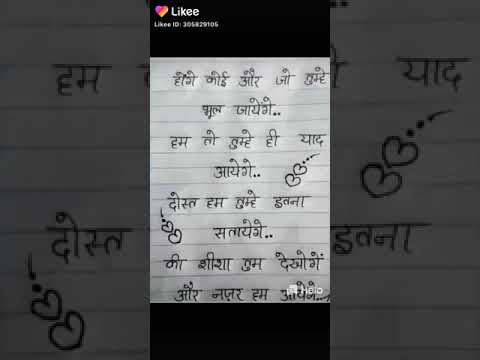 Likee
Likee ID: 305829105
होंगे कोई और जो तुम्हे
भूल जायेगे..
हम तो तुम्हे ही याद
आयेगे..
दोस्त हम तुम्हे इतना
सतायेगे..
की शीशा तुम देखोगें
और नज़र हम आयेंगे...
Helo
हम
याद
दोस्त
इतना